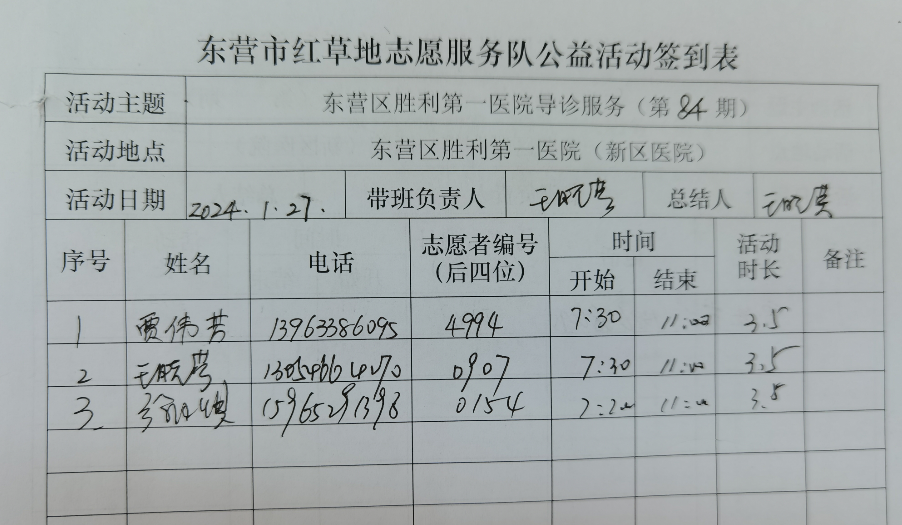 东营市红草地志愿服务队公益活动签到表
活动主题 东营区胜利第一医院导诊服务（第84期）
活动地点 东营区胜利第一医院（新区医院）
活动日期 2024.1.27. 带班负责人 王晓营 总结人 王晓营
序号 姓名 电话 志愿者编号（后四位） 时间 开始 结束 活动时长 备注
1 贾伟芳 13963386095 4994 7:30 11:00 3.5
2 王晓营 13054664070 0907 7:30 11:00 3.5
3 15965291398 0154 11:00 3.5